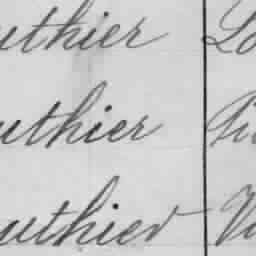 uthier Lo
uthier
uthier